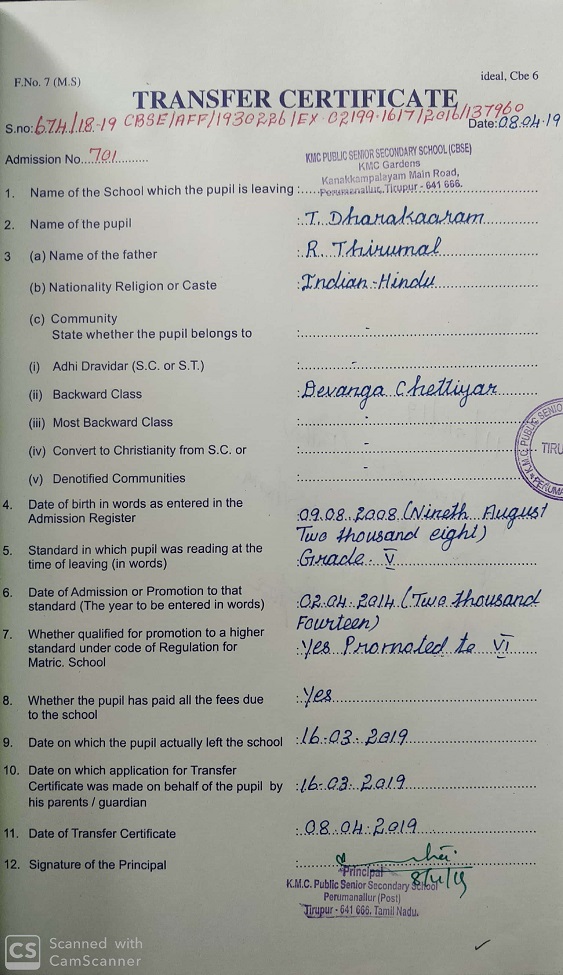 F.No. 7 (M.S)
ideal, Cbe 6
TRANSFER CERTIFICATE
S.no: 674/18-19 CBSE/AFF/1930226/EX 02199-1617/2016/137960
Date: 08.04.19
Admission No. 701
KMC PUBLIC SENIOR SECONDARY SCHOOL (CBSE)
KMC Gardens
Kanakkampalayam Main Road,
Perumanallur, Tirupur - 641 666.
1. Name of the School which the pupil is leaving :
2. Name of the pupil : T. Dharakaaram
3 (a) Name of the father : R. Thirumal
(b) Nationality Religion or Caste : Indian-Hindu
(c) Community
State whether the pupil belongs to : -
(i) Adhi Dravidar (S.C. or S.T.) : -
(ii) Backward Class : Devanga Chettiyar
(iii) Most Backward Class : -
(iv) Convert to Christianity from S.C. or : -
(v) Denotified Communities : -
K.M.C. PUBLIC SENIO
TIRU
PERUMA
4. Date of birth in words as entered in the
Admission Register : 09.08.2008 (Nineth August
Two thousand eight)
5. Standard in which pupil was reading at the
time of leaving (in words) : Grade - V
6. Date of Admission or Promotion to that
standard (The year to be entered in words) : 02.04.2014 (Two thousand
Fourteen)
7. Whether qualified for promotion to a higher
standard under code of Regulation for : Yes Promoted to VI
Matric. School
8. Whether the pupil has paid all the fees due : Yes
to the school
9. Date on which the pupil actually left the school : 16-03-2019
10. Date on which application for Transfer
Certificate was made on behalf of the pupil by : 16-03-2019
his parents / guardian
11. Date of Transfer Certificate : 08.04.2019
12. Signature of the Principal :
8/4/19
Principal
K.M.C. Public Senior Secondary School
Perumanallur (Post)
Tirupur - 641 666. Tamil Nadu.
CS Scanned with
CamScanner